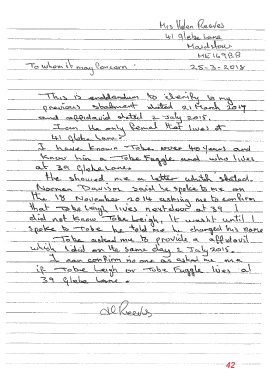 Mrs Helen Reeves
41 Globe Lane
Maidstone
ME16 9BB
To whom it may concern:
25-3-2018
This is enddendum to clarify to my
previous statment dated 21 March 2017
and affidavid dated 2 July 2015.
I am the only femal that lives at
41 Globe Lane.
I have known Tobe over 40 years and
know him a Tobe Fuggle and who lives
at 39 Globe Lane.
He showed me a letter which stated.
Norman Davison said he spoke to me on
the 18 November 2014 asking me to confirm
that Tobe Leigh lives nextdoor at 39. I
did not know Tobe Leigh. It wasnt until I
spoke to Tobe he told me he changed his name
Tobe asked me to provide a affidavil
which I did on the same day 2 July 2015.
I can confirm no one as asked me
if Tobe Leigh or Tobe Fuggle lives at
39 Globe Lane.
H Reeves
42